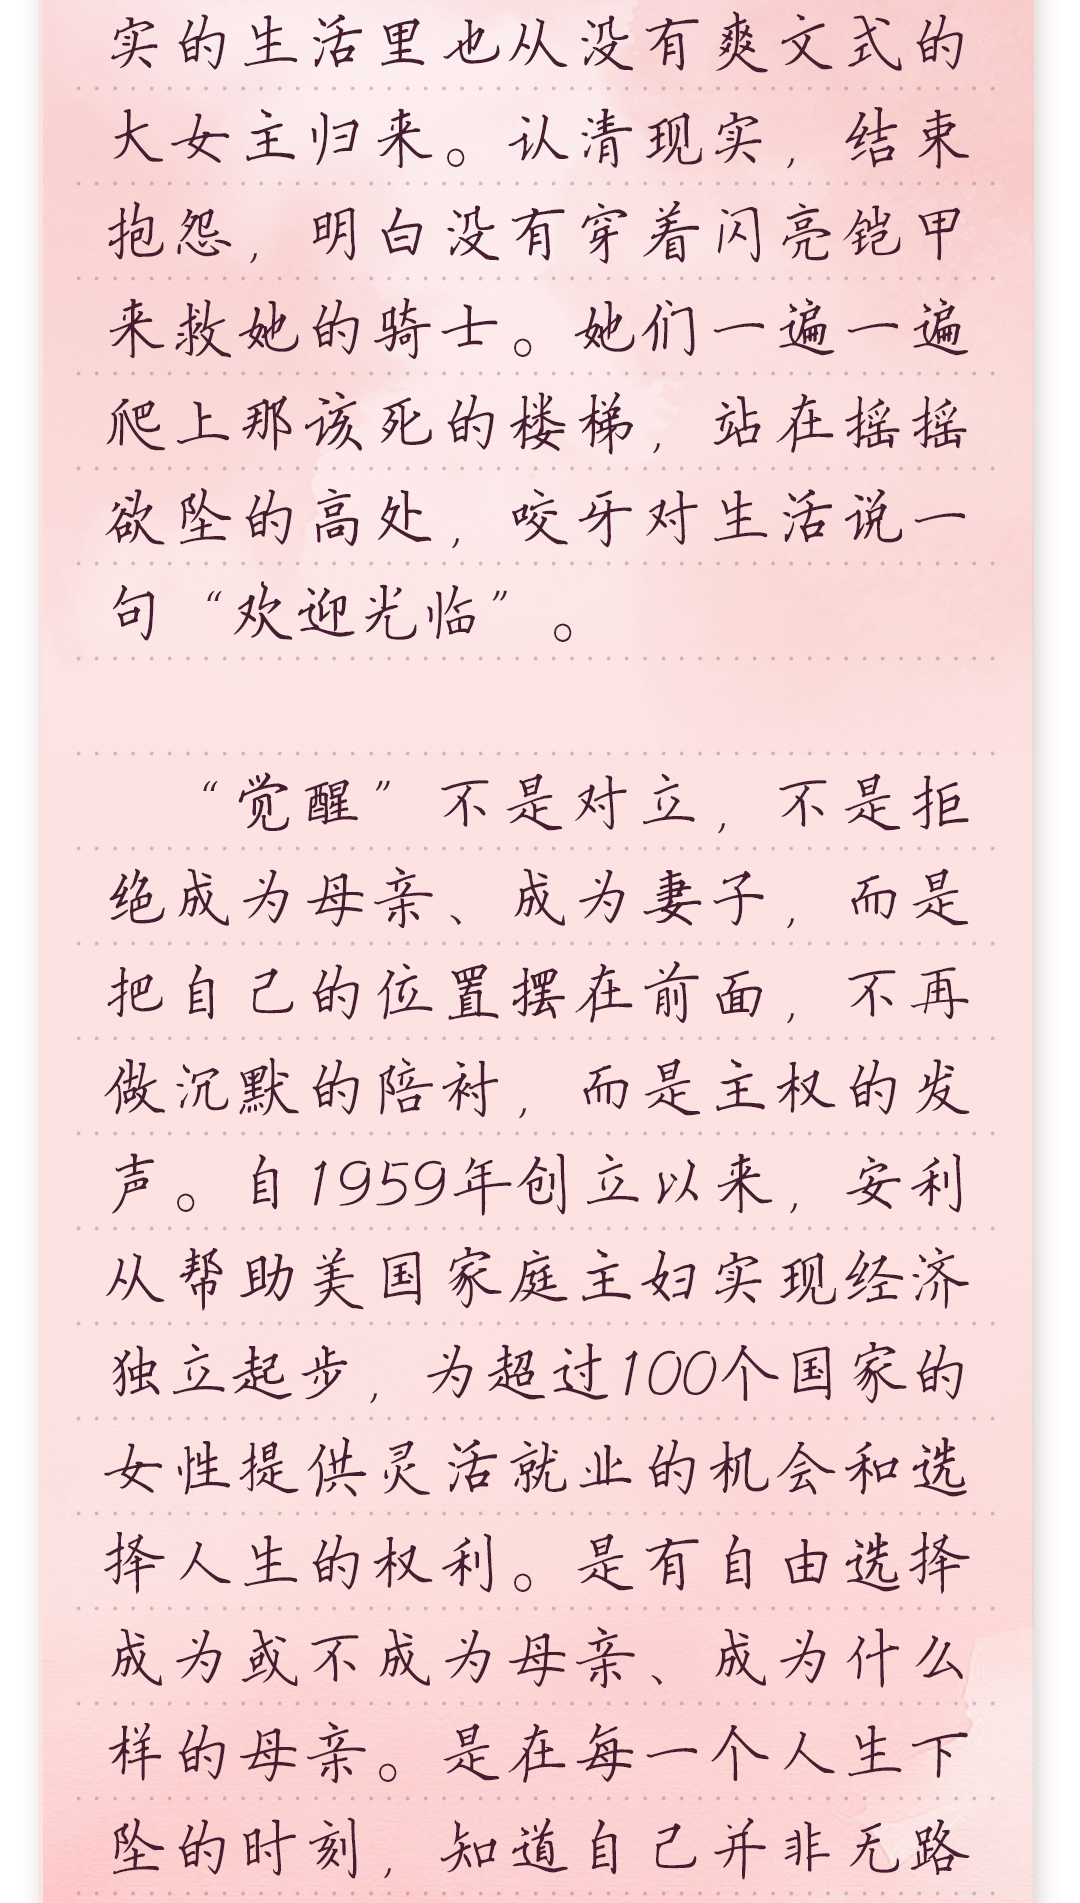 实的生活里也从没有爽文式的
大女主归来。认清现实，结束
抱怨，明白没有穿着闪亮铠甲
来救她的骑士。她们一遍一遍
爬上那该死的楼梯，站在摇摇
欲坠的高处，咬牙对生活说一
句“欢迎光临”。
“觉醒”不是对立，不是拒
绝成为母亲、成为妻子，而是
把自己的位置摆在前面，不再
做沉默的陪衬，而是主权的发
声。自1959年创立以来，安利
从帮助美国家庭主妇实现经济
独立起步，为超过100个国家的
女性提供灵活就业的机会和选
择人生的权利。是有自由选择
成为或不成为母亲、成为什么
样的母亲。是在每一个人生下
坠的时刻，知道自己并非无路